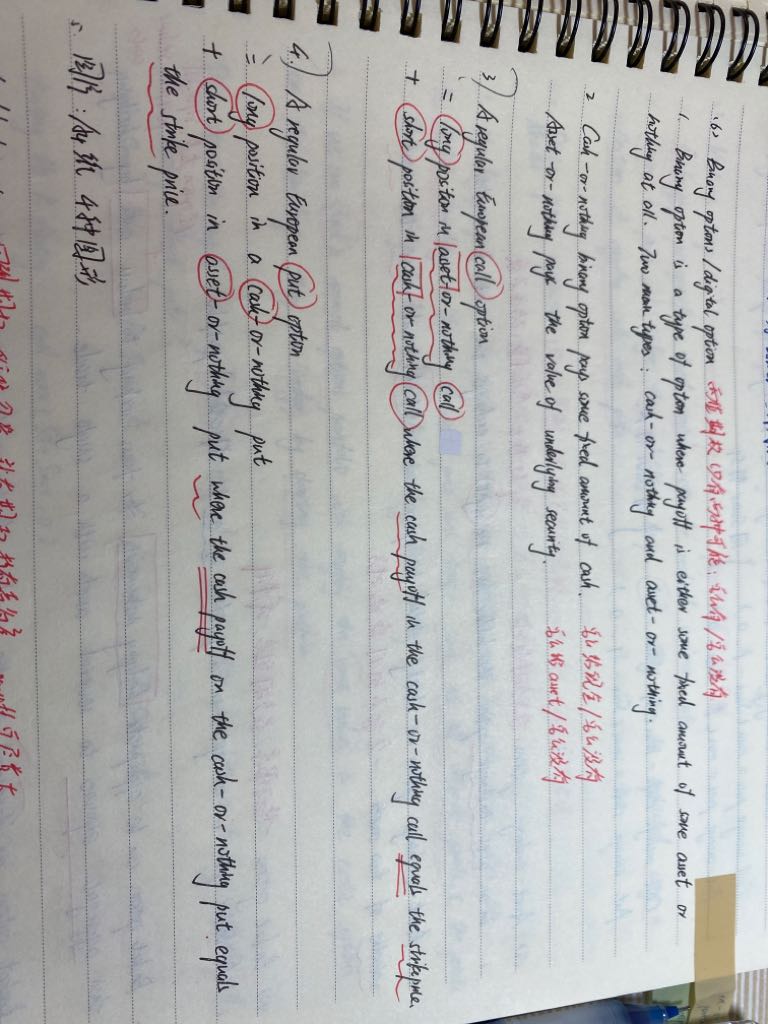 (6) Binary options / digital option
1. Binary option is a type of option where payoff is either some fixed amount of some asset or
nothing at all. Two main types: cash-or-nothing and asset-or-nothing.
2 Cash-or-nothing binary option pays some fixed amount of cash. 要么给现金/要么没有
Asset-or-nothing pays the value of underlying security. 要么给asset/要么没有
3) A regular European call option
= long position in asset-or-nothing call
+ short position in cash-or-nothing call where the cash payoff in the cash-or-nothing call equals the strike price.
4.) A regular European put option
= long position in a cash-or-nothing put
+ short position in asset-or-nothing put where the cash payoff on the cash-or-nothing put equals
the strike price.
5、图形:4种图形